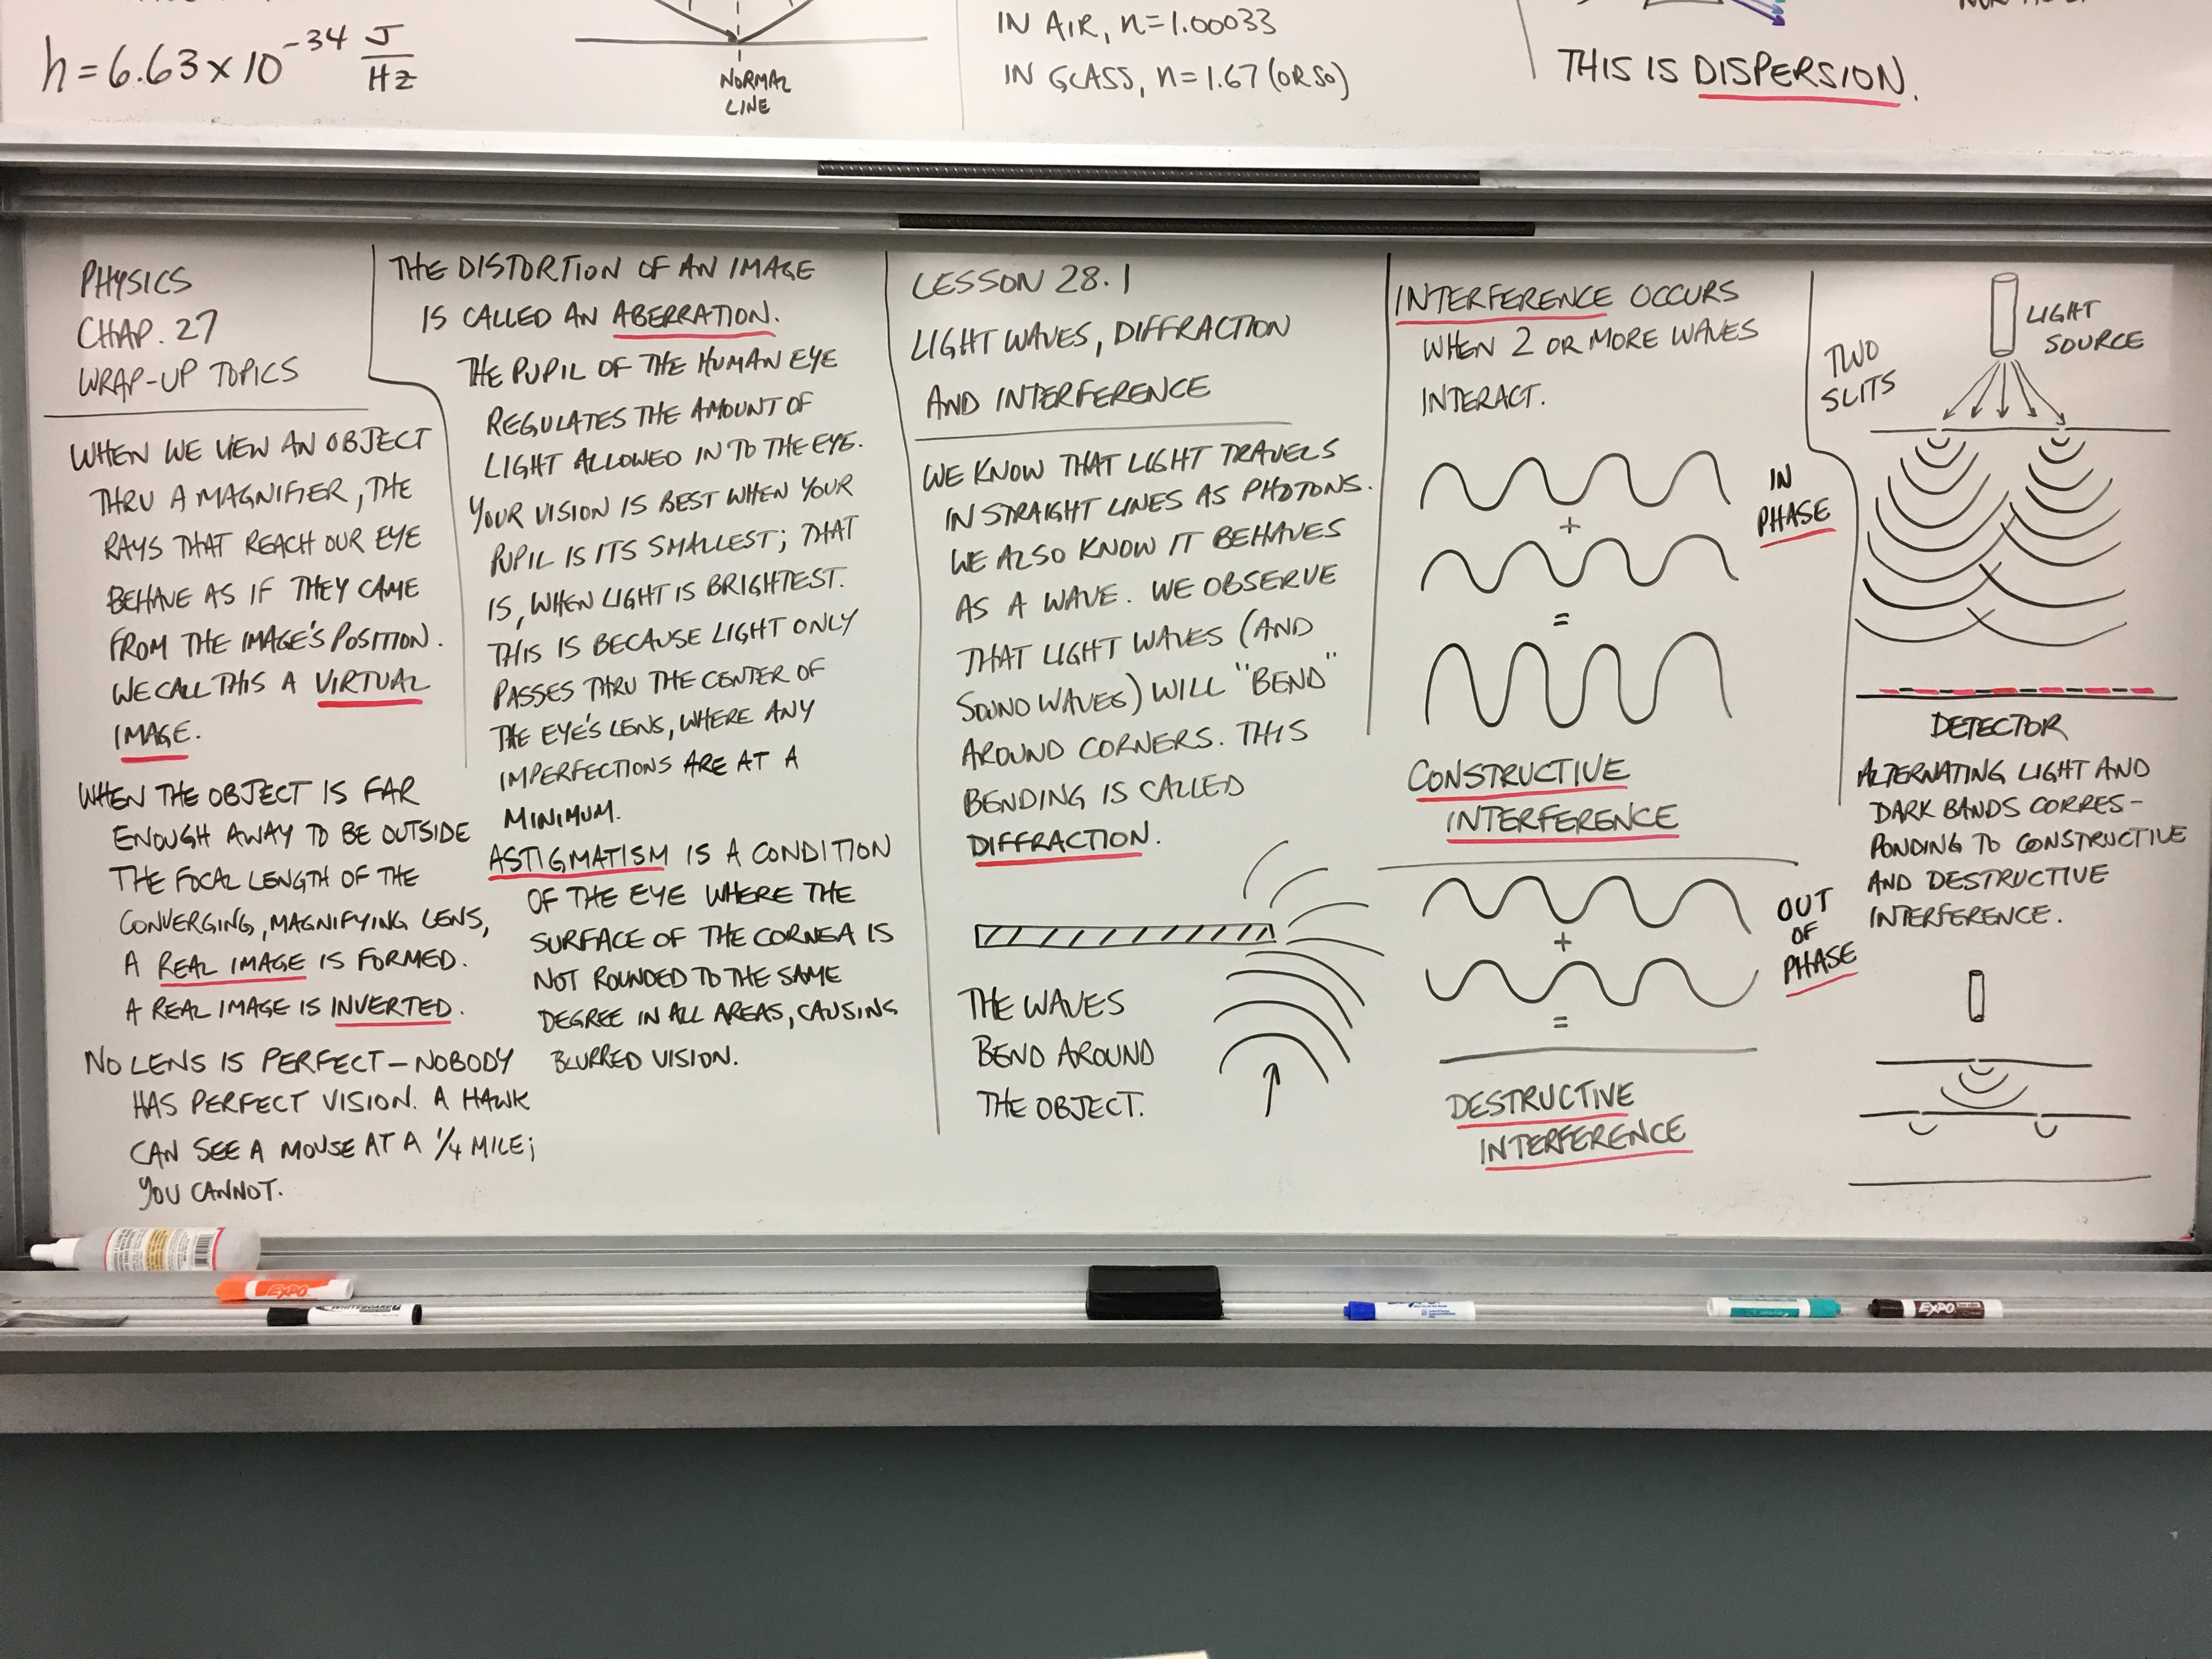 h = 6.63 x 10⁻³⁴ J/Hz
NORMAL
LINE
IN AIR, n=1.00033
IN GLASS, n=1.67 (OR SO)
THIS IS DISPERSION.
PHYSICS
CHAP. 27
WRAP-UP TOPICS
WHEN WE VIEW AN OBJECT
THRU A MAGNIFIER, THE
RAYS THAT REACH OUR EYE
BEHAVE AS IF THEY CAME
FROM THE IMAGE'S POSITION.
WE CALL THIS A VIRTUAL
IMAGE.
WHEN THE OBJECT IS FAR
ENOUGH AWAY TO BE OUTSIDE
THE FOCAL LENGTH OF THE
CONVERGING, MAGNIFYING LENS,
A REAL IMAGE IS FORMED.
A REAL IMAGE IS INVERTED.
NO LENS IS PERFECT - NOBODY
HAS PERFECT VISION. A HAWK
CAN SEE A MOUSE AT A 1/4 MILE;
YOU CANNOT.
THE DISTORTION OF AN IMAGE
IS CALLED AN ABERRATION.
THE PUPIL OF THE HUMAN EYE
REGULATES THE AMOUNT OF
LIGHT ALLOWED IN TO THE EYE.
YOUR VISION IS BEST WHEN YOUR
PUPIL IS ITS SMALLEST; THAT
IS, WHEN LIGHT IS BRIGHTEST.
THIS IS BECAUSE LIGHT ONLY
PASSES THRU THE CENTER OF
THE EYE'S LENS, WHERE ANY
IMPERFECTIONS ARE AT A
MINIMUM.
ASTIGMATISM IS A CONDITION
OF THE EYE WHERE THE
SURFACE OF THE CORNEA IS
NOT ROUNDED TO THE SAME
DEGREE IN ALL AREAS, CAUSING
BLURRED VISION.
LESSON 28.1
LIGHT WAVES, DIFFRACTION
AND INTERFERENCE
WE KNOW THAT LIGHT TRAVELS
IN STRAIGHT LINES AS PHOTONS.
WE ALSO KNOW IT BEHAVES
AS A WAVE. WE OBSERVE
THAT LIGHT WAVES (AND
SOUND WAVES) WILL "BEND"
AROUND CORNERS. THIS
BENDING IS CALLED
DIFFRACTION.
THE WAVES
BEND AROUND
THE OBJECT.
INTERFERENCE OCCURS
WHEN 2 OR MORE WAVES
INTERACT.
IN
PHASE
+
=
CONSTRUCTIVE
INTERFERENCE
OUT
OF
PHASE
+
=
DESTRUCTIVE
INTERFERENCE
LIGHT
SOURCE
TWO
SLITS
DETECTOR
ALTERNATING LIGHT AND
DARK BANDS CORRES-
PONDING TO CONSTRUCTIVE
AND DESTRUCTIVE
INTERFERENCE.
EXPO
EXPO